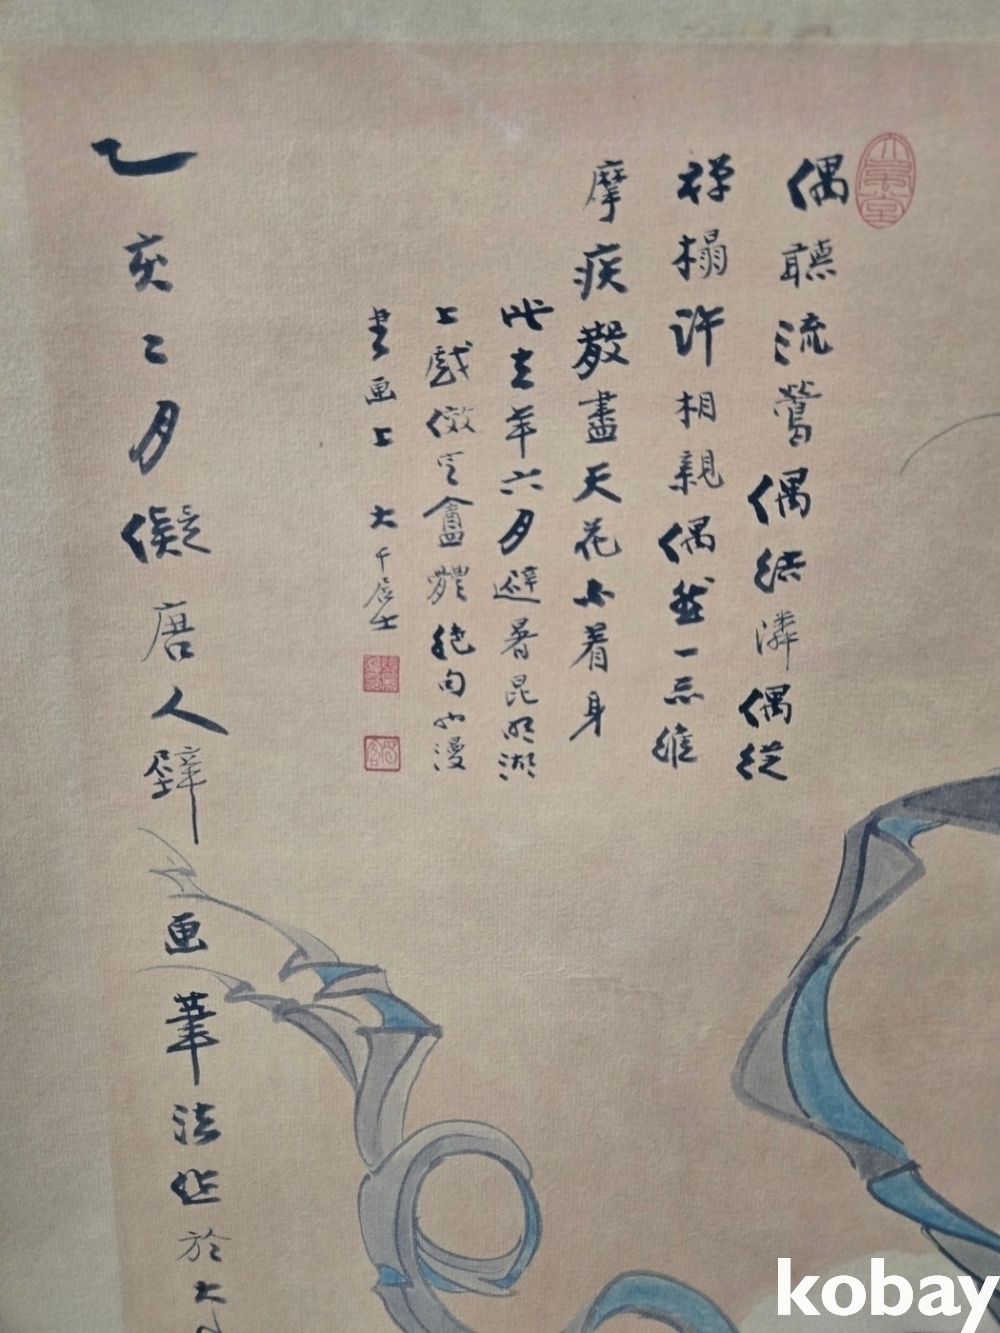 偶聽流鶯偶結隣偶從
禪榻許相親偶然一示維
摩疾散盡天花不着身
此去年六月避暑昆明湖
上戲倣定盦體絶句也漫
書画上 大千居士
乙亥二月儗唐人壁画筆法作於大
大風堂
kobay